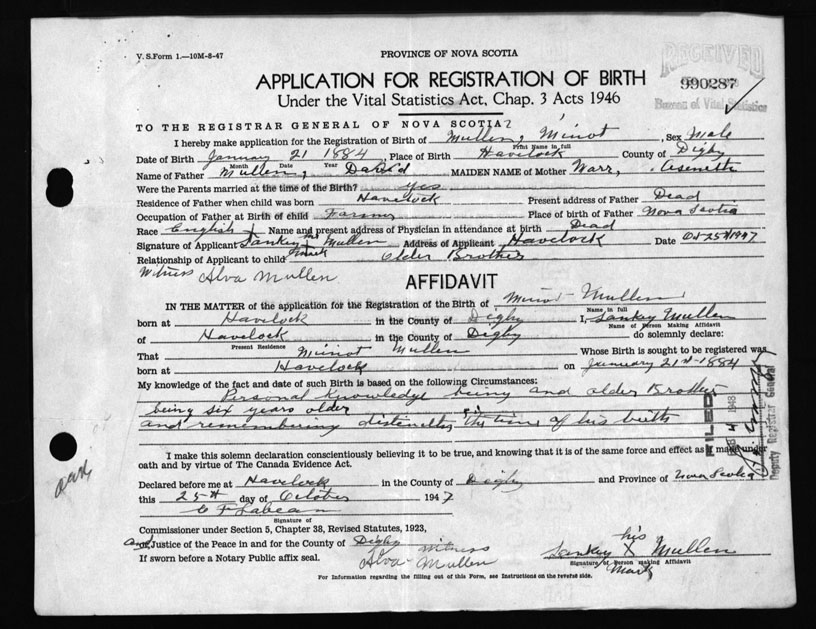 V. S. Form 1.—10M-8-47
PROVINCE OF NOVA SCOTIA
RECEIVED
990287
Bureau of Vital Statistics
APPLICATION FOR REGISTRATION OF BIRTH
Under the Vital Statistics Act, Chap. 3 Acts 1946
TO THE REGISTRAR GENERAL OF NOVA SCOTIA:
I hereby make application for the Registration of Birth of Mullen, Minot, Sex Male
Print Name in full
Date of Birth January 21 1884, Place of Birth Havelock County of Digby
Month Date Year
Name of Father Mullen, David MAIDEN NAME of Mother Warr, Asenath
Were the Parents married at the time of the Birth? yes
Residence of Father when child was born Havelock Present address of Father Dead
Occupation of Father at Birth of child Farmer Place of birth of Father Nova Scotia
Race English Name and present address of Physician in attendance at birth Dead
Signature of Applicant Sankey his X mark Mullen Address of Applicant Havelock Date Oct 25th 1947
Relationship of Applicant to child Older Brother
Witness Alva Mullen
AFFIDAVIT
IN THE MATTER of the application for the Registration of the Birth of Minot Mullen
Name in full
born at Havelock in the County of Digby I, Sankey Mullen
Name of Person Making Affidavit
of Havelock in the County of Digby do solemnly declare:
Present Residence
That Minot Mullen Whose Birth is sought to be registered was
born at Havelock on January 21st-1884
My knowledge of the fact and date of such Birth is based on the following Circumstances:
Personal Knowledge being and older Brother
being six years older
and remembering distinctly the time of his birth
FILED
1948
Deputy Registrar General
I make this solemn declaration conscientiously believing it to be true, and knowing that it is of the same force and effect as if made under
oath and by virtue of The Canada Evidence Act.
Declared before me at Havelock in the County of Digby and Province of Nova Scotia
this 25th day of October 1947
Signature of
Commissioner under Section 5, Chapter 38, Revised Statutes, 1923,
and Justice of the Peace in and for the County of Digby
If sworn before a Notary Public affix seal.
Witness
Alva Mullen
his
Sankey X Mullen
Mark
Signature of Person making Affidavit
For Information regarding the filling out of this Form, see Instructions on the reverse side.